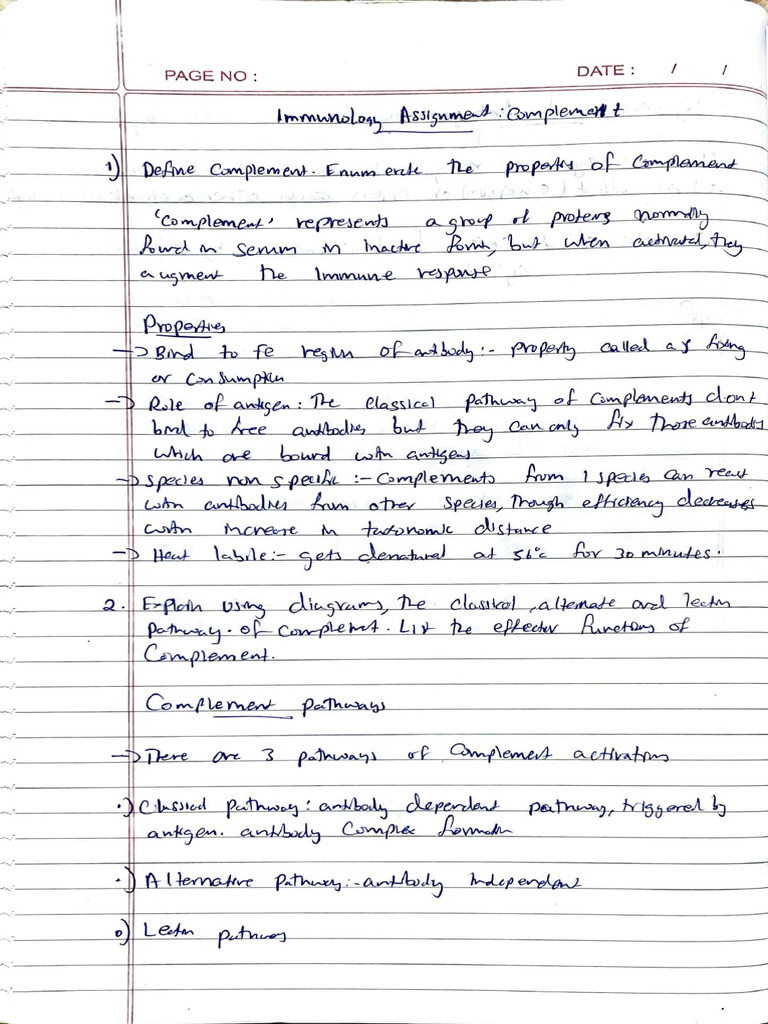 PAGE NO :
DATE : / /
Immunology Assignment : Complement
1) Define Complement. Enumerate the properties of Complement
'Complement' represents a group of proteins normally
found in serum in inactive form, but when activated, they
augment the immune response
Properties
→ Bind to Fc region of antibody :- property called as fixing
or consumption
→ Role of antigen : The classical pathway of complements dont
bind to free antibodies but they can only fix those antibodies
which are bound with antigens
→ Species non specific :- Complements from 1 species can react
with antibodies from other species, though efficiency decreases
with increase in taxonomic distance
→ Heat labile :- gets denatured at 56°c for 30 minutes.
2. Explain using diagrams, the classical, alternate and lectin
pathway. of complement. List the effector functions of
Complement.
Complement pathways
→ There are 3 pathways of complement activation
•) Classical pathway : antibody dependent pathway, triggered by
antigen. antibody complex formation
•) Alternative pathway :- antibody independent
•) Lectin pathway